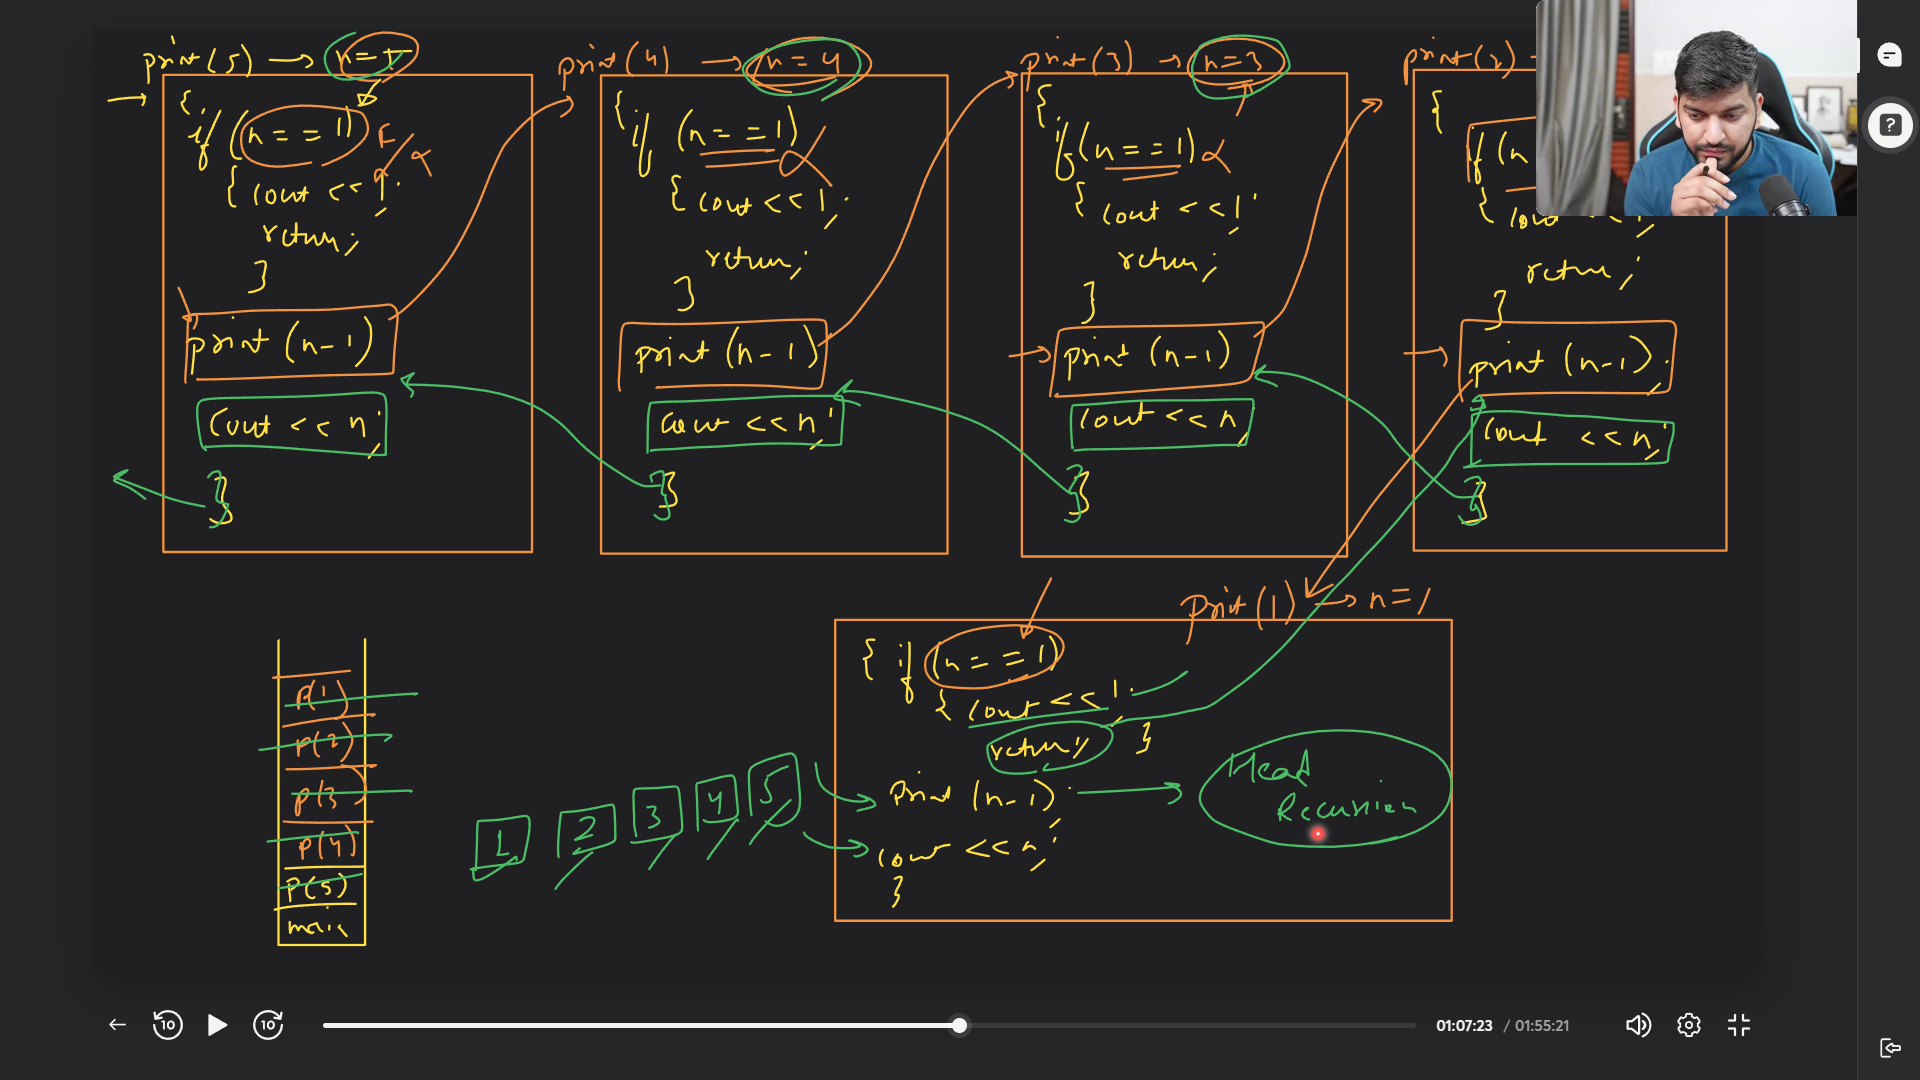 print(5) → n=5
{
if (n==1) F
{ cout << 1;
return;
}
print (n-1)
cout << n;
}
print(4) → n=4
{
if (n==1)
{ cout << 1;
return;
}
print (n-1)
cout << n;
}
print(3) → n=3
{
if (n==1)
{ cout << 1;
return;
}
print (n-1)
cout << n;
}
print(2)
{
if (n
{ cout <<
return;
}
print (n-1);
cout << n;
}
print(1) → n=1
{ if (n==1)
{ cout << 1;
return; }
print (n-1);
cout << n;
}
Head
Recursion
P(1)
P(2)
P(3)
P(4)
P(5)
main
1 2 3 4 5
10
10
01:07:23 / 01:55:21